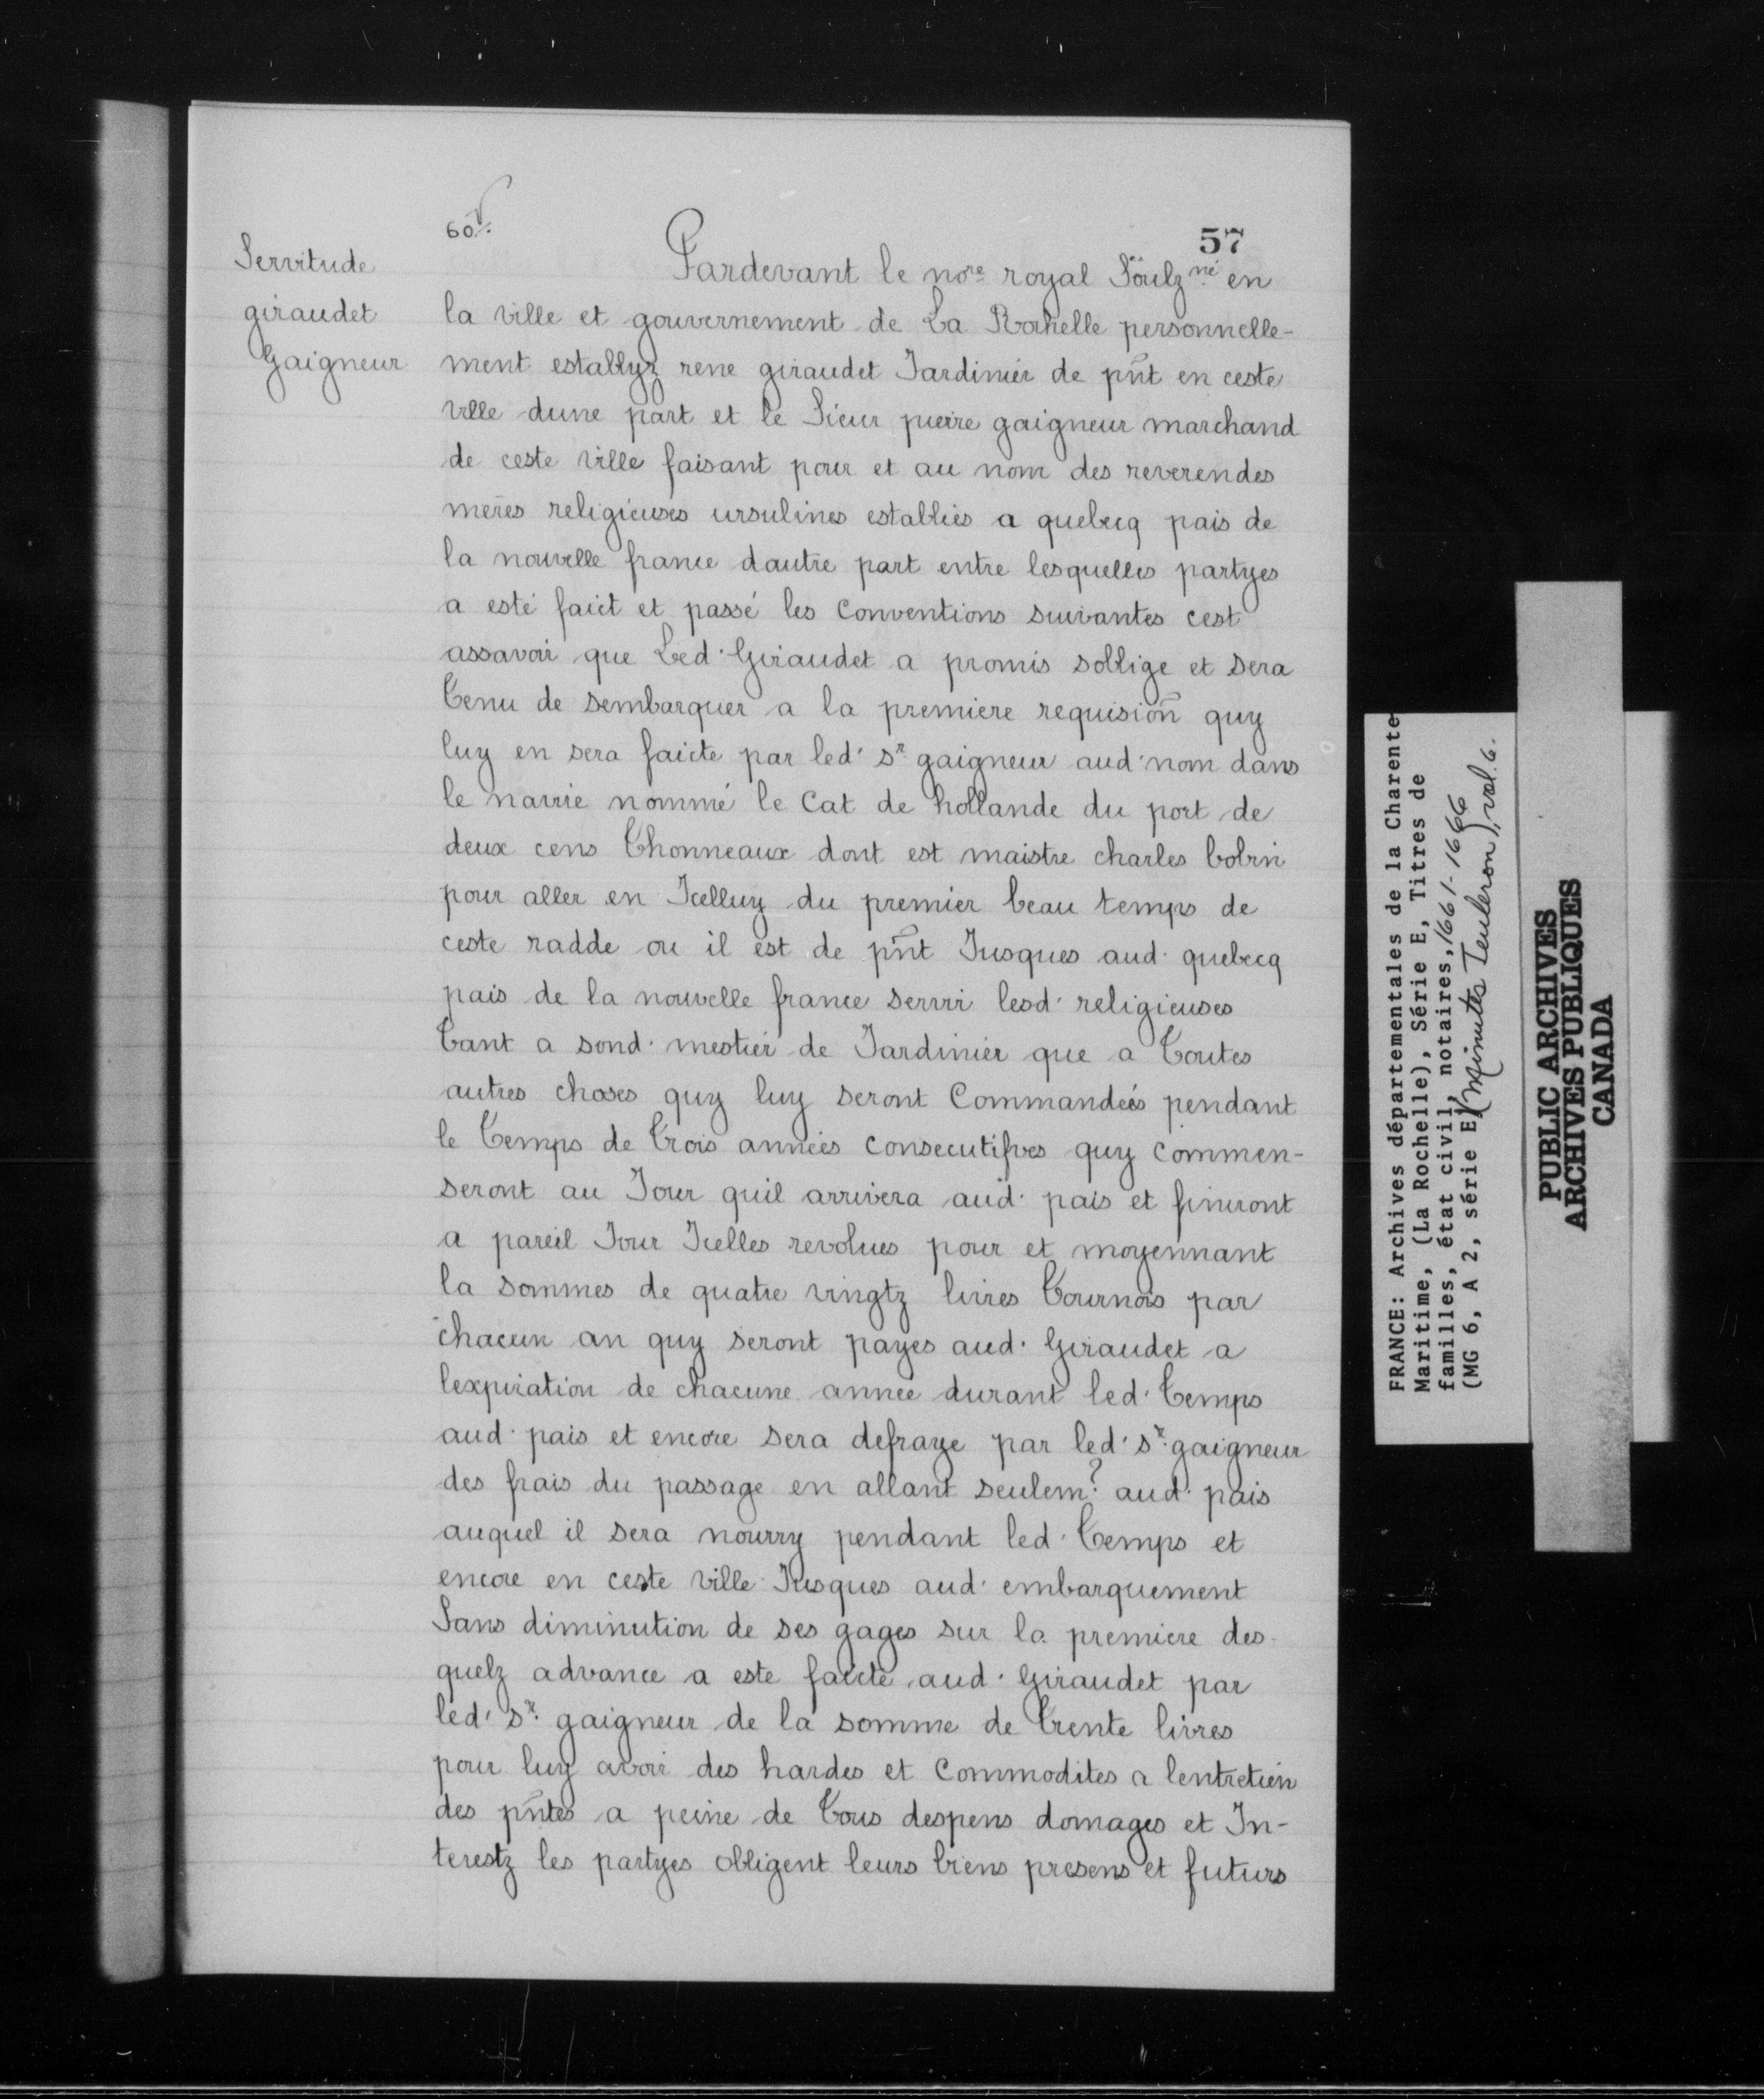 60
57
Servitude
giraudet
Gaigneur
Pardevant le nore royal Soulz né en
la ville et gouvernement de La Rochelle personnelle-
ment establyz rene giraudet Jardinier de pñt en ceste
ville dune part et le Sieur pierre gaigneur marchand
de ceste ville faisant pour et au nom des reverendes
meres religieuses ursulines establies a quebecq pais de
la nouvelle france dautre part entre lesquelles partyes
a esté faict et passé les Conventions suivantes cest
assavoir que Led. Giraudet a promis soblige et sera
Tenu de sembarquer a la premiere requision quy
luy en sera faicte par led. sr gaigneur aud. nom dans
le navire nommé le Cat de hollande du port de
deux cens Thonneaux dont est maistre charles bobin
pour aller en Icelluy du premier beau temps de
ceste radde ou il est de pñt Jusques aud. quebecq
pais de la nouvelle france servir lesd. religieuses
Tant a sond. mestier de Jardinier que a Toutes
autres choses quy luy seront Commandées pendant
le Temps de Trois années consecutifves quy commen-
seront au Jour quil arrivera aud. pais et finiront
a pareil Jour Icelles revolues pour et moyennant
la sommes de quatre vingtz livres Tournois par
chacun an quy seront payes aud. Giraudet a
lexpiration de chacune année durant led. Temps
aud. pais et encore sera defraye par led. sr. gaigneur
des frais du passage en allant seulemt. aud. pais
auquel il sera nourry pendant led. Temps et
encore en ceste ville Jusques aud. embarquement
Sans diminution de ses gages sur la premiere des-
quelz advance a este faicte aud. Giraudet par
led. sr. gaigneur de la somme de Trente livres
pour luy avoir des hardes et Commodites a lentretien
des pñtes a peine de Tous despens domages et In-
terestz les partyes obligent leurs biens presens et futurs
FRANCE: Archives départementales de la Charente
Maritime, (La Rochelle), Série E, Titres de
familles, état civil, notaires, 1661-1666
(MG 6, A 2, série E (Minutes Teuleron), vol. 6.
PUBLIC ARCHIVES
ARCHIVES PUBLIQUES
CANADA